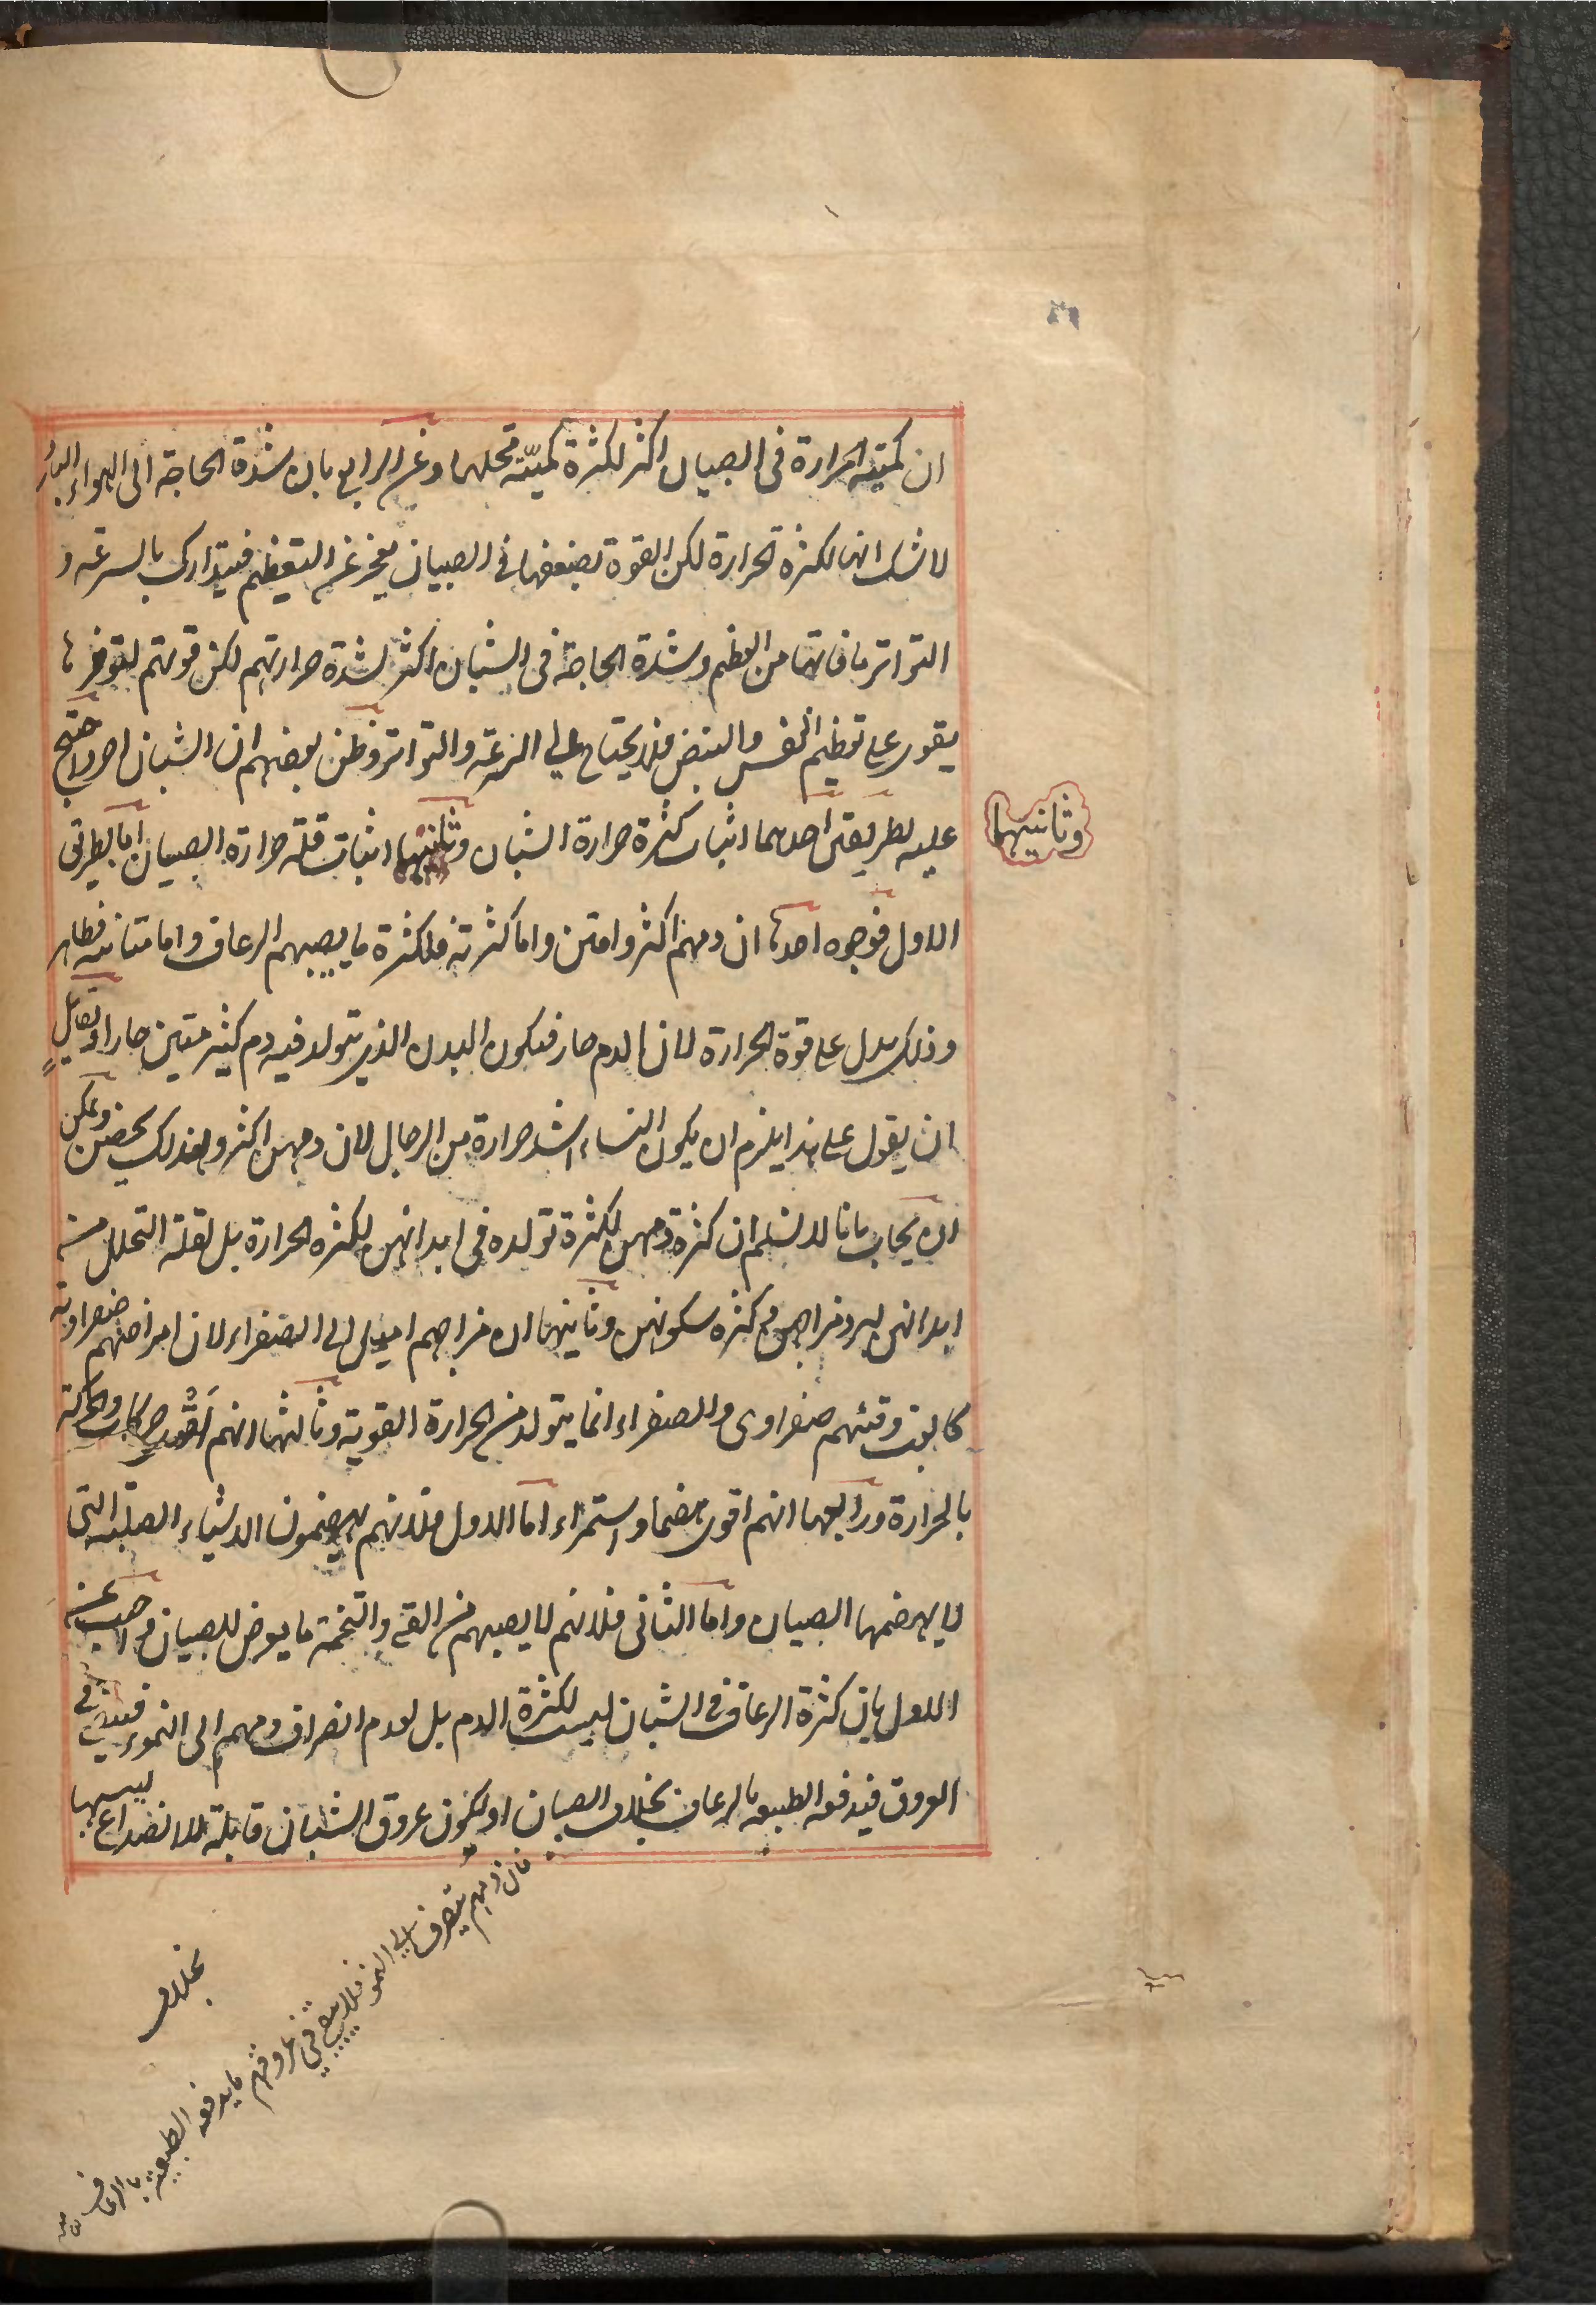 ان كمية الحرارة فى الصبيان اكثر لكثرة كميّة محلها وعن الرابع بان شدة الحاجة الى الهواء البارد
لا شك انها لكثرة الحرارة لكن القوة لضعفها فى الصبيان يعجز عن التعظيم فيتدارك بالسرعة و
التواتر ما فاتها من العظم وشدة الحاجة فى الشبان اكثر لشدة حرارتهم لكن قوتهم لتوفرها
يقوى على تعظيم النفس والنبض فلا يحتاج الى السرعة والتواتر وظن بعضهم ان الشبان احر واحتج
عليه بطريقين احدهما اثبات كثرة حرارة الشبان وثانيهما اثبات قلة حرارة الصبيان اما بطريق
وثانيهما
الاول فوجوه احدها ان دمهم اكثر وامتن واما كثرته فلكثرة ما يصيبهم الرعاف واما متانته فظاهر
وذلك يدل على قوة الحرارة لان الدم حار فيكون البدن الذى يتولد فيه دم كثير متين حارا ولقايل
ان يقول على هذا يلزم ان يكون النساء اشد حرارة من الرجال لان دمهن اكثر ولذلك يحضن ويمكن
ان يجاب بانا لا نسلم ان كثرة دمهن لكثرة تولده فى ابدانهن لكثرة الحرارة بل لقلة التحلل من
ابدانهن لبرد مزاجهن وكثرة سكونهن وثانيها ان مزاجهم اميل الى الصفراء لان امراضهم صفراوية
كالغب وقيئهم صفراوى والصفراء انما يتولد من الحرارة القوية وثالثها انهم اقوى حركات والحركة
بالحرارة ورابعها انهم اقوى هضما واستمراء اما الاول فلانهم يهضمون الاشياء الصلبة التى
لا يهضمها الصبيان واما الثانى فلانهم لا يصيبهم من القئ والتخمة ما يعرض للصبيان واجيب عن
الاول بان كثرة الرعاف فى الشبان ليست لكثرة الدم بل لعدم انصراف دمهم الى النمو فيبقى فى
العروق فيدفعه الطبيعة بالرعاف بخلاف الصبيان او لكون عروق الشبان قابلة للانصداع ليبسها
فان دمهم يتصرف الى النمو فلا يبقى فى عروقهم ما يدفعه الطبيعة بالرعاف
بخلاف